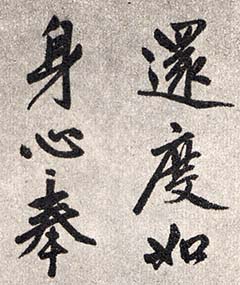 還度如
身心奉